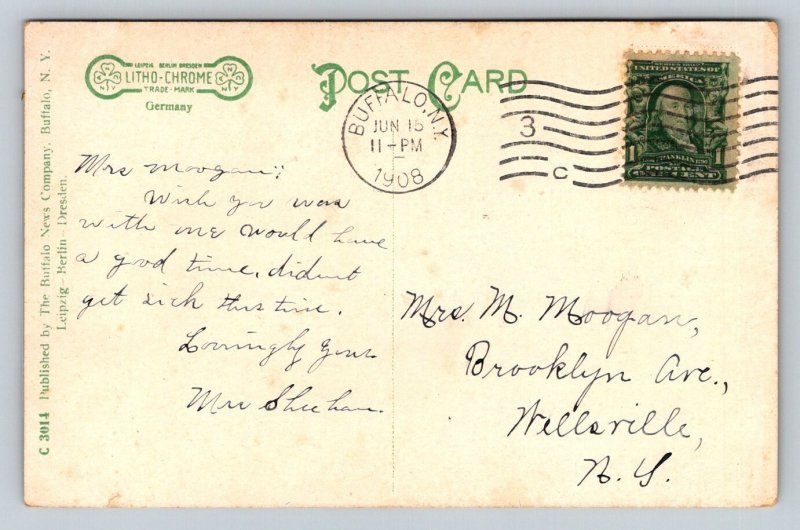 LEIPZIG BERLIN DRESDEN
LITHO-CHROME
TRADE-MARK
Germany
POST CARD
BUFFALO, N.Y.
JUN 15
11-PM
1908
3
C
SERIES 1902
UNITED STATES OF
AMERICA
FRANKLIN
POSTAGE
1 ONE CENT 1
C 3014 Published by The Buffalo News Company, Buffalo, N. Y.
Leipzig - Berlin - Dresden.
Mrs Moogan;
Wish you was
with me would have
a good time, didnt
get sick this time.
Lovingly yours
Mrs Sheehan.
Mrs. M. Moogan,
Brooklyn Ave.,
Wellsville,
N. Y.